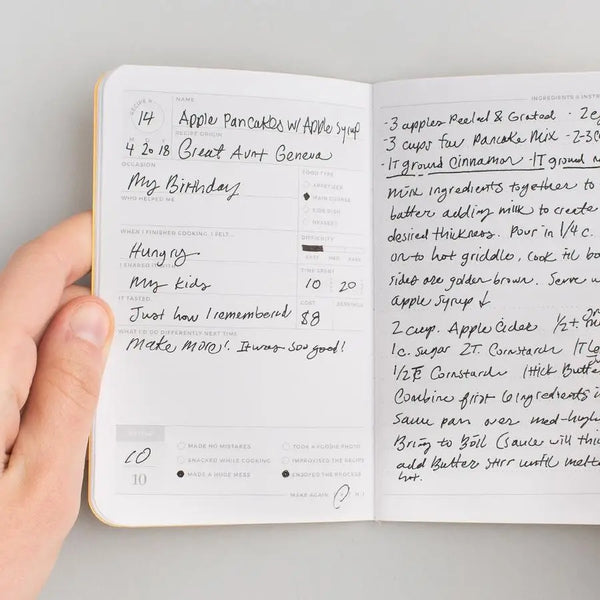 RECIPE #
14
NAME
Apple Pancakes w/ Apple Syrup
RECIPE ORIGIN
M D Y
4 20 18 Great Aunt Geneva
OCCASION
My Birthday
WHO HELPED ME
FOOD TYPE
APPETIZER
MAIN COURSE
SIDE DISH
DESSERT
WHEN I FINISHED COOKING, I FELT...
Hungry
DIFFICULTY
EASY MED HARD
I SHARED IT WITH
My kids
TIME SPENT
10 : 20
IT TASTED
Just how I remembered
COST
$8
SERVINGS
WHAT I'D DO DIFFERENTLY NEXT TIME
Make more! It was soo good!
10
10
MADE NO MISTAKES
SNACKED WHILE COOKING
MADE A HUGE MESS
TOOK A FOODIE PHOTO
IMPROVISED THE RECIPE
ENJOYED THE PROCESS
MAKE AGAIN Y N
INGREDIENTS & INSTR
-3 apples Peeled & Grated - 2 e
-3 cups fav Pancake Mix - 2-3
-1T ground Cinnamon -1T ground
mix ingredients together to
batter adding milk to create
desired thickness. Pour in 1/4 c.
on to hot griddle, cook til bo
sides are golden brown. Serve w
apple syrup ↓
2 cup. Apple Cider 1/2 t
1c. sugar 2T. Cornstarch 1T
1/2 Cornstarch 1 thick Butte
Combine first 6 ingredients i
Sauce pan over med-high
Bring to Boil (sauce will thic
add Butter stir until melte
hot.